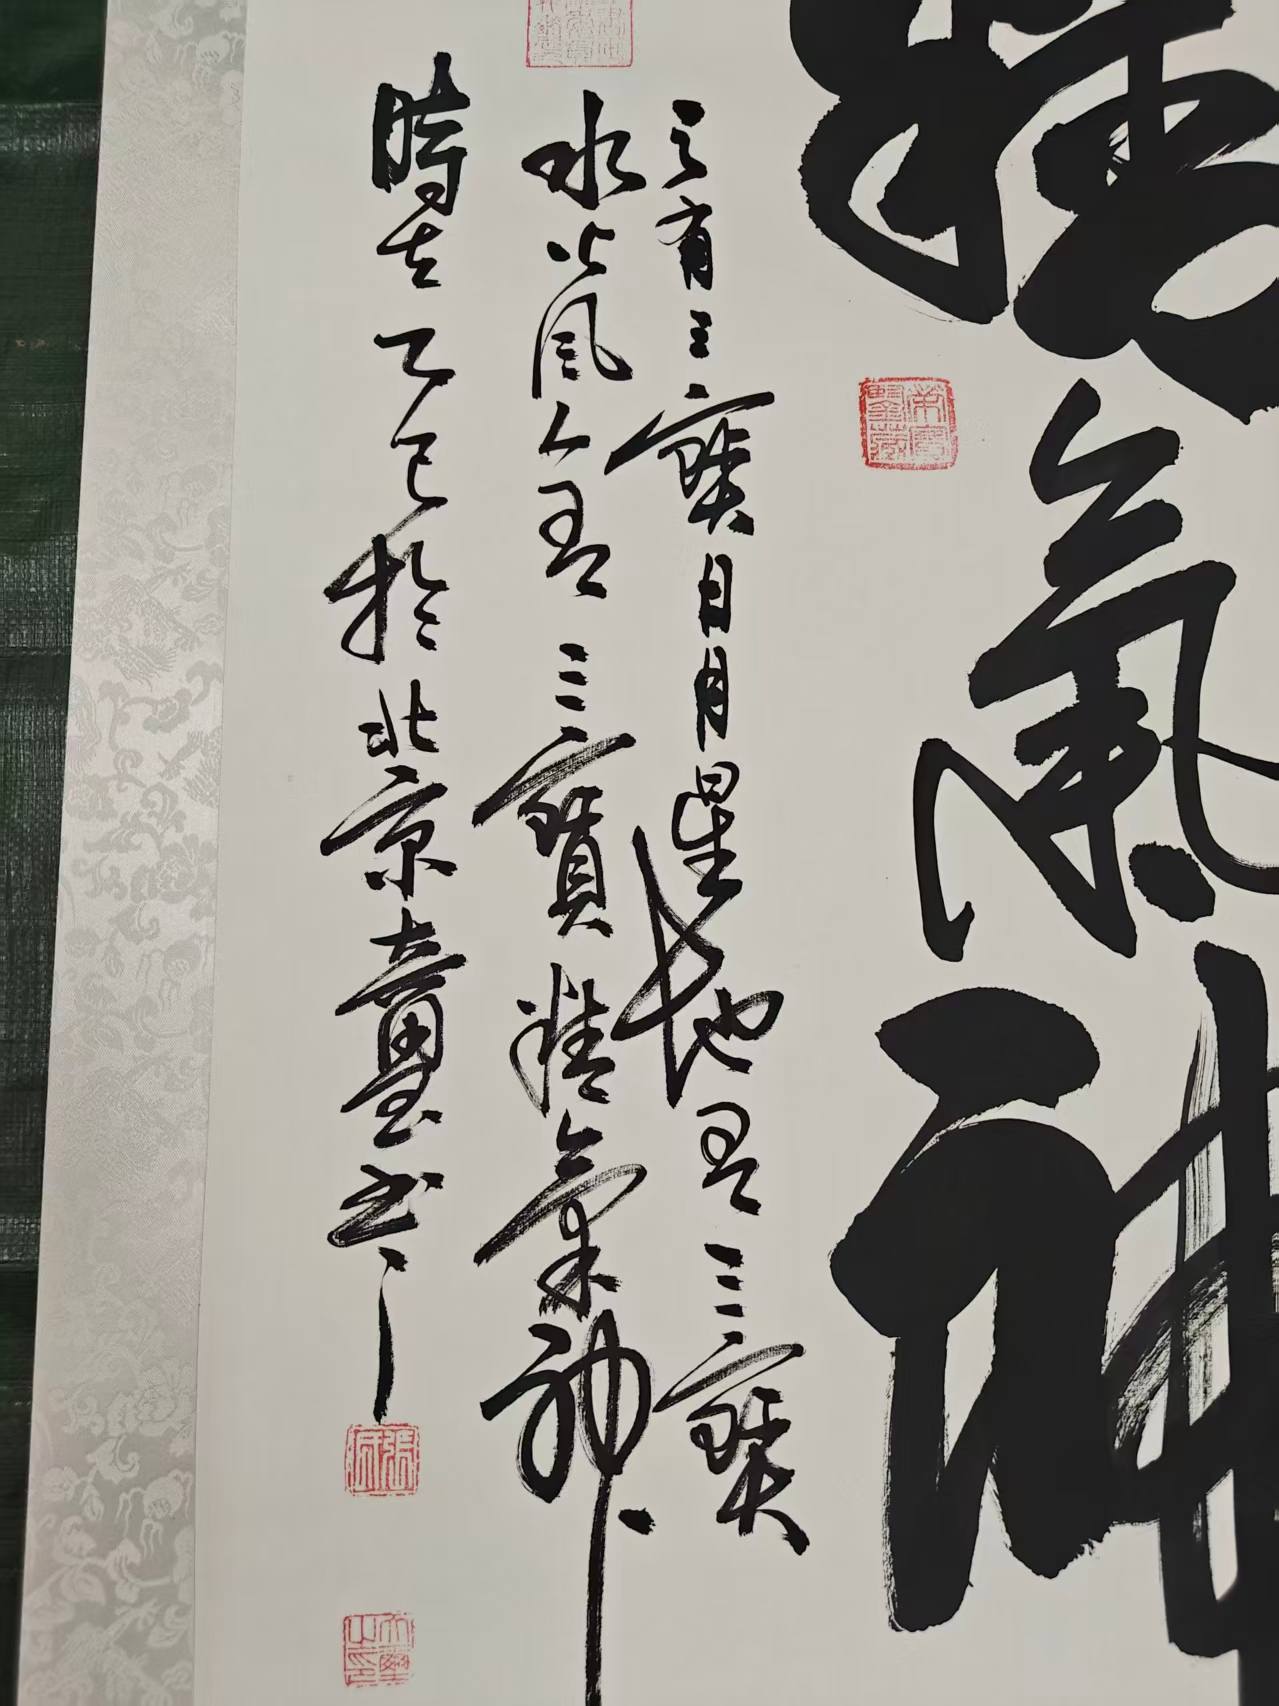 精氣神
天有三寶日月星地有三寶
水火風人有三寶精氣神
時在乙巳於北京臺書
榮寶鑒藏